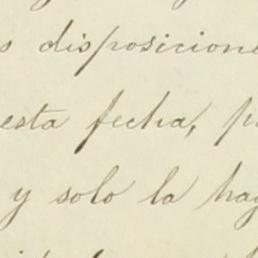 s disposicione
esta fecha, p
y solo la hay